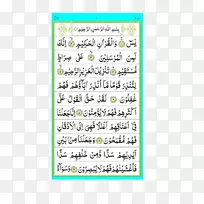 بِسْمِ اللَّهِ الرَّحْمَٰنِ الرَّحِيمِ
يسٓ وَالْقُرْآنِ الْحَكِيمِ إِنَّكَ
لَمِنَ الْمُرْسَلِينَ عَلَىٰ صِرَاطٍ
مُسْتَقِيمٍ تَنْزِيلَ الْعَزِيزِ الرَّحِيمِ
لِتُنْذِرَ قَوْمًا مَا أُنْذِرَ آبَاؤُهُمْ فَهُمْ
غَافِلُونَ لَقَدْ حَقَّ الْقَوْلُ عَلَىٰ
أَكْثَرِهِمْ فَهُمْ لَا يُؤْمِنُونَ إِنَّا جَعَلْنَا
فِي أَعْنَاقِهِمْ أَغْلَالًا فَهِيَ إِلَى الْأَذْقَانِ
فَهُمْ مُقْمَحُونَ وَجَعَلْنَا مِنْ بَيْنِ
أَيْدِيهِمْ سَدًّا وَمِنْ خَلْفِهِمْ سَدًّا
فَأَغْشَيْنَاهُمْ فَهُمْ لَا يُبْصِرُونَ وَسَوَاءٌ